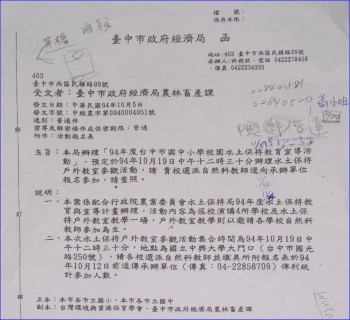 檔　號：
保存年限：
臺中市政府經濟局　函
地址:403 臺中市西區民權路99號
傳真 0422234300
403
臺中市西區民權路99號
受文者：臺中市政府經濟局農林畜產課
發文日期：中華民國94年10月5日
發文字號：中經農字第0940004051號
速別：普通件
密等及解密條件或保密期限：普通
附件：活動報名表
主旨：本局辦理「94年度台中市國中小學校園水土保持教育宣導活
動」，預定於94年10月19日中午十二時三十分辦理水土保持
戶外教室參觀活動，請 貴校選派自然科教師逕向承辦單位
報名參加，請查照。
說明：
一、本案係配合行政院農業委員會水土保持局本年度水土保持教
育與宣導計畫辦理，活動內容為蒞校演講4所學校及水土保
持戶外教室教學一場，戶外教室教學則以邀請各學校自然科
教師參加為主。
二、本次水土保持戶外教室參觀活動集合時間為94年10月19日中
午十二時三十分，地點為國立中興大學大門口（台中市國光
路250號），請各校選派自然科教師並填具所附報名表於94
年10月12日前逕傳承辦單位（傳真：04-22858709）俾利統
計參加人數。
正本：本市各市立國小、本市各市立國中
副本：台灣環境與資源保育學會、臺中市政府經濟局農林畜產課